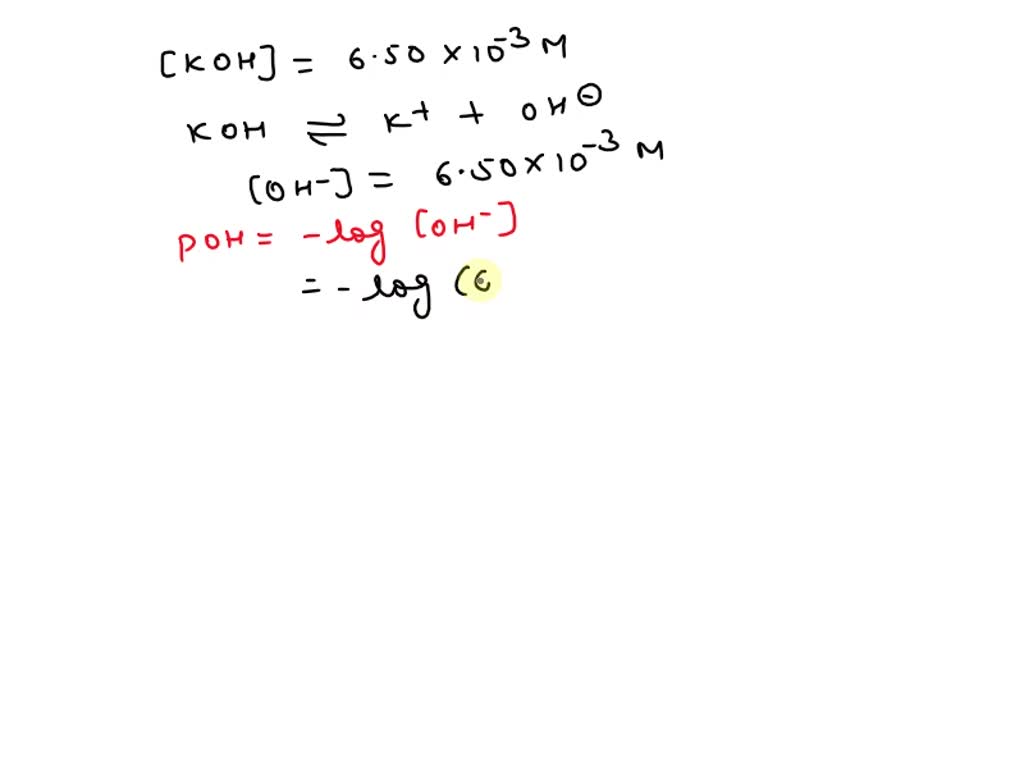 [KOH] = 6.50 × 10⁻³ M
KOH ⇌ K⁺ + OH⊖
[OH⁻] = 6.50 × 10⁻³ M
POH = -log [OH⁻]
= -log (6